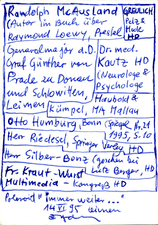 Randolph McAusland GREULICH
(Autor im Buch über Pelz &
Raymond Loewy, Prestel) Mude
HD
Generalmajor a.D. Dr. med.
Graf Günther von Kautz HD
Prade zu Donau (Neurologe &
und Schlowitten, Psychologe
Leimen Haubold &
Kümpel, MA Mallau
Otto Humburg, Bonn (Spiegel, Nr. 21
Herr Riedesel, Springer Verlag HD 1995, S. 10
Herr Silber-Bonz (gesehen bei
Fr. Kraut-Wurst Lutz Berger, HD
Multimedia-Kongreß HD
Polaroid "immer weiter..."
14 VI 95